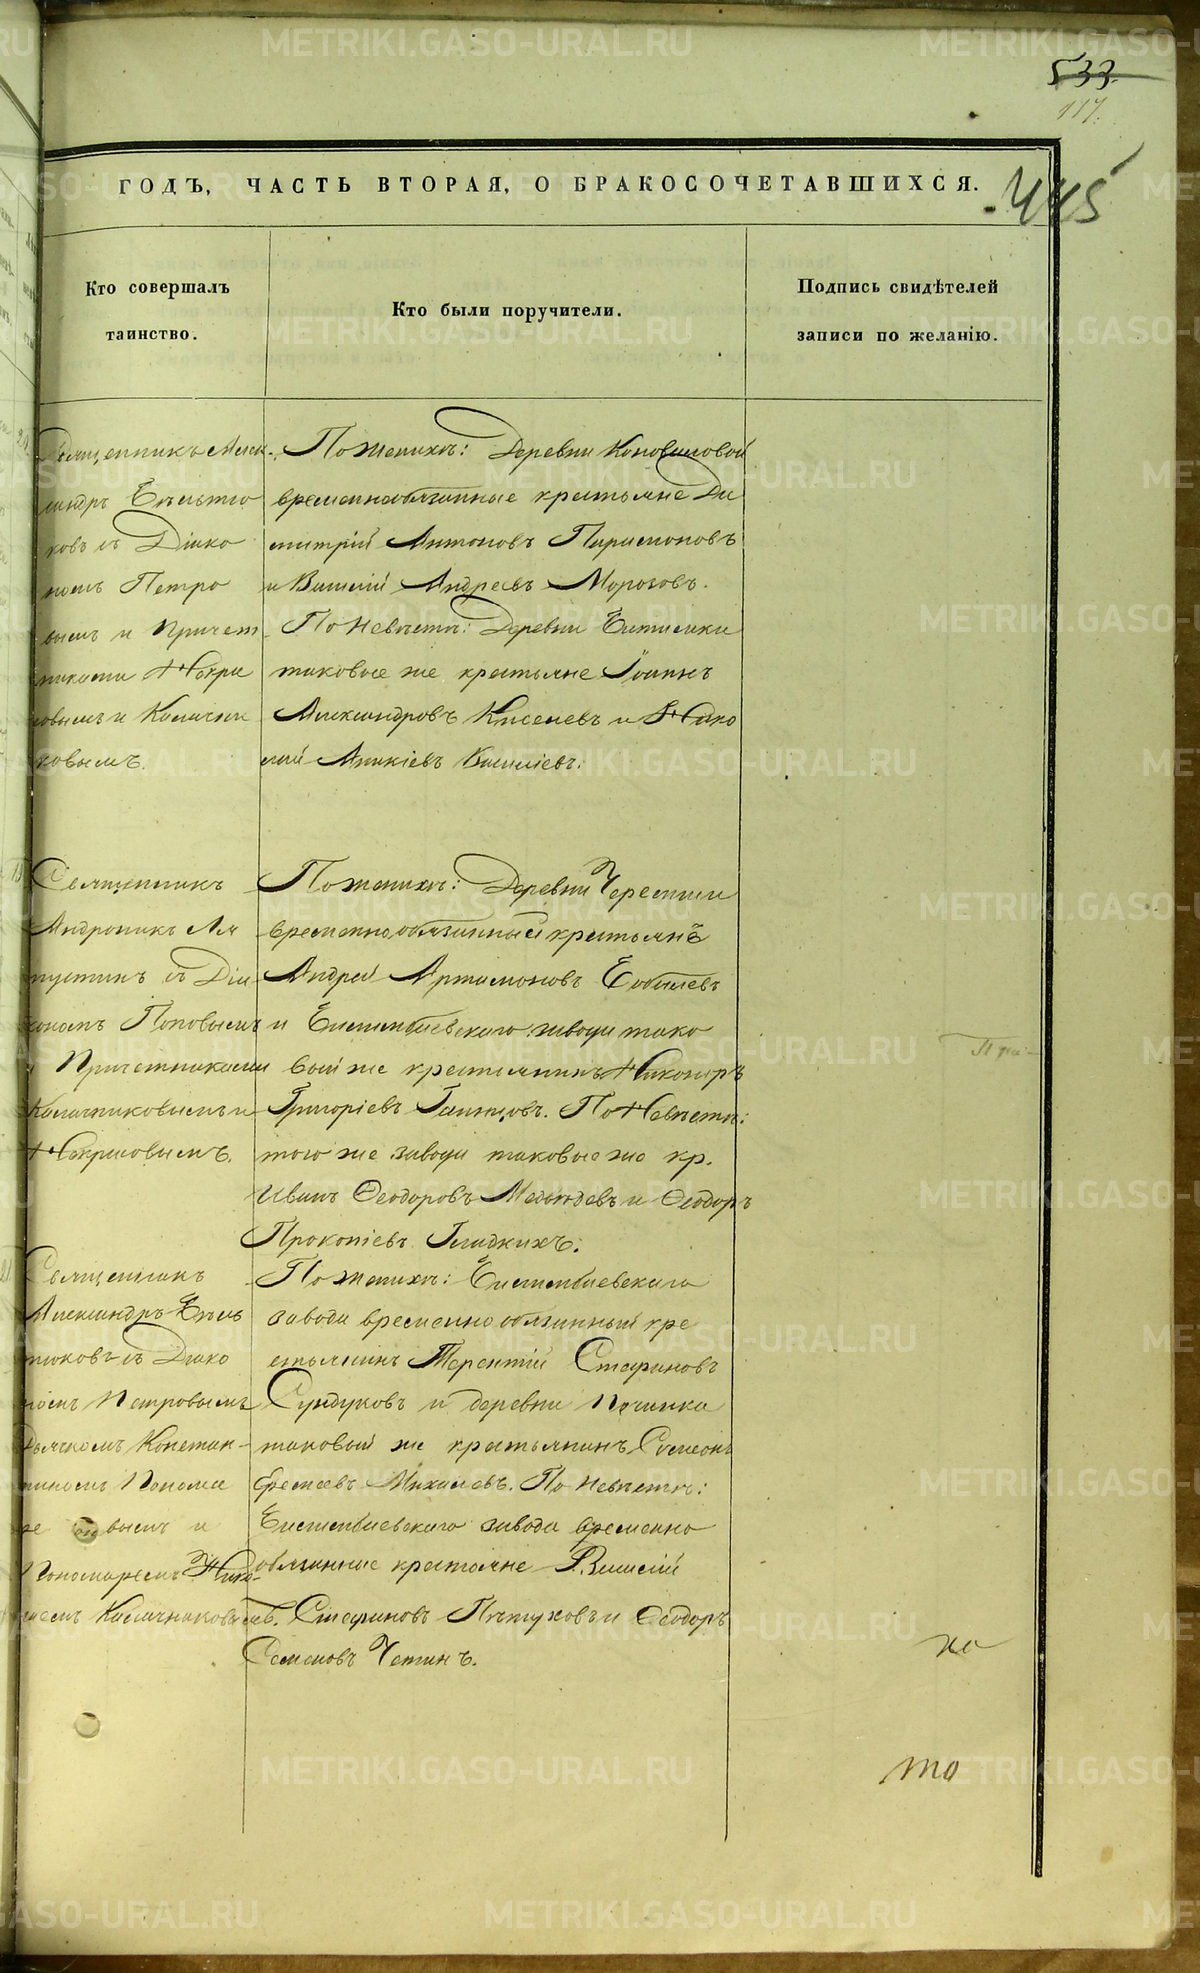 533.
117.
445
ГОДЪ, ЧАСТЬ ВТОРАЯ, О БРАКОСОЧЕТАВШИХСЯ.
Кто совершалъ
таинство.
Кто были поручители.
Подпись свидѣтелей
записи по желанію.
Священникъ Алек-
сандръ
ковъ съ Діако
номъ Петро
вымъ и Причет
никами Некра
совымъ и Калачни
ковымъ.
По женихѣ: Деревни Коноваловой
временнообязанные крестьяне Ди
митрій Антоновъ Парамоновъ
и Василій Андреевъ Морозовъ.
По невѣстѣ: Деревни
таковые же крестьяне Іоаннъ
Александровъ Киселевъ и Нико
лай Аникіевъ Василіевъ.
Священникъ
Андроникъ Ля
пустинъ съ Діа
кономъ Поповымъ
и Причетниками
Калачниковымъ и
Некрасовымъ.
По женихѣ: Деревни Черемши
временнообязанный крестьянъ
Андрей Артамоновъ
и завода тако
вый же крестьянинъ Никаноръ
Григоріевъ По Невѣстѣ:
того же завода таковые же кр.
Иванъ Ѳеодоровъ Медвѣдевъ и Ѳеодоръ
Прокопіевъ Гладкихъ.
Священникъ
Александръ
съ Діако
номъ Петровымъ
Дьячкомъ Констан-
тиномъ Понома
ре вымъ и
Пономаремъ Нико-
лаемъ Калачниковымъ.
По женихѣ:
завода временно обязанный кре
стьянинъ Терентій Стефановъ
Сундуковъ и деревни Починка
таковый же крестьянинъ Симеонъ
Еремеевъ Михалевъ. По невѣстѣ:
завода временно
обязанные крестьяне Василій
Стефановъ Пѣтуховъ и Ѳеодоръ
Семеновъ
на
то
METRIKI.GASO-URAL.RU